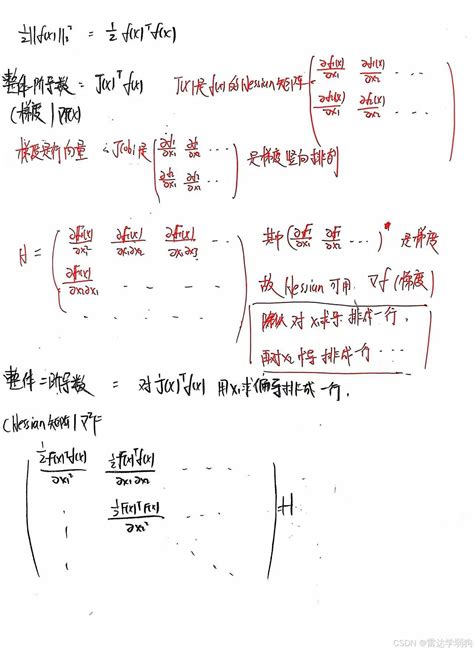 ½||f(x)||₂² = ½ f(x)ᵀf(x)
整体一阶导数 = J(x)ᵀ f(x) J(x)是f(x)的Hessian矩阵 ( ∂f₁(x)/∂x₁ ∂f₁(x)/∂x₂ ...
(梯度 | ∇F(x) ∂f₂(x)/∂x₁ ∂f₂(x)/∂x₂ ... )
梯度是行向量 ∴ J(x)是 ( ∂f₁/∂x₁ ∂f₁/∂x₂ ... 是梯度竖向排列
∂f₂/∂x₁ ∂f₂/∂x₂ ... )
H = ( ∂f(x)/∂x₁² ∂f(x)/∂x₁∂x₂ ∂f(x)/∂x₁∂x₃ ... 其中 ( ∂f/∂x₁ ∂f/∂x₂ ... ) 是梯度
∂f(x)/∂x₂∂x₁ ... 故Hessian可用 ∇f (梯度)
对x₁求导排成一行,
再对x₂求导排成一行 ...
整体二阶导数 = 对J(x)ᵀf(x) 用x₁求偏导排成一行,
(Hessian矩阵 | ∇²F
( ½f(x)ᵀf(x)/∂x₁² ½f(x)ᵀf(x)/∂x₁∂x₂ ...
½f(x)ᵀf(x)/∂x₂² ... ) = H
CSDN @雷达学弱狗